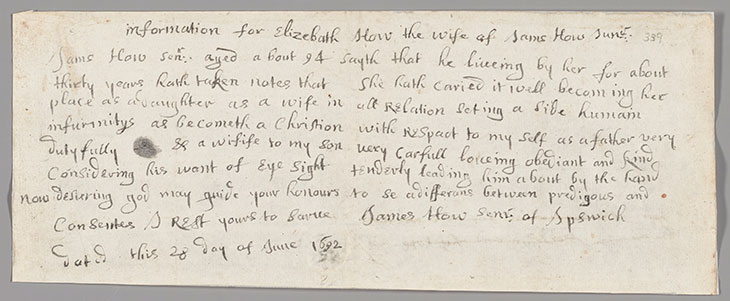 information for Elizebath How the wife of Jams How Junr. 339
Jams How senr. aged about 94 sayth that he liueing by her for about
thirty years hath taken notes that she hath caried it well becoming her
place as a daughter as a wife in all Relation seting a side humain
infurmitys as becometh a Christion with Respact to my self as a father very
dutyfully & a wifife to my son uery Carfull loueing obediant and kind
Considering his want of Eye sight tenderly leading him about by the hand
now desiering god may guide your honours to se a differans between predigous and
Consentes I Rest yours to Sarue James How senr. of Ipswich
Dated this 28 day of June 1692